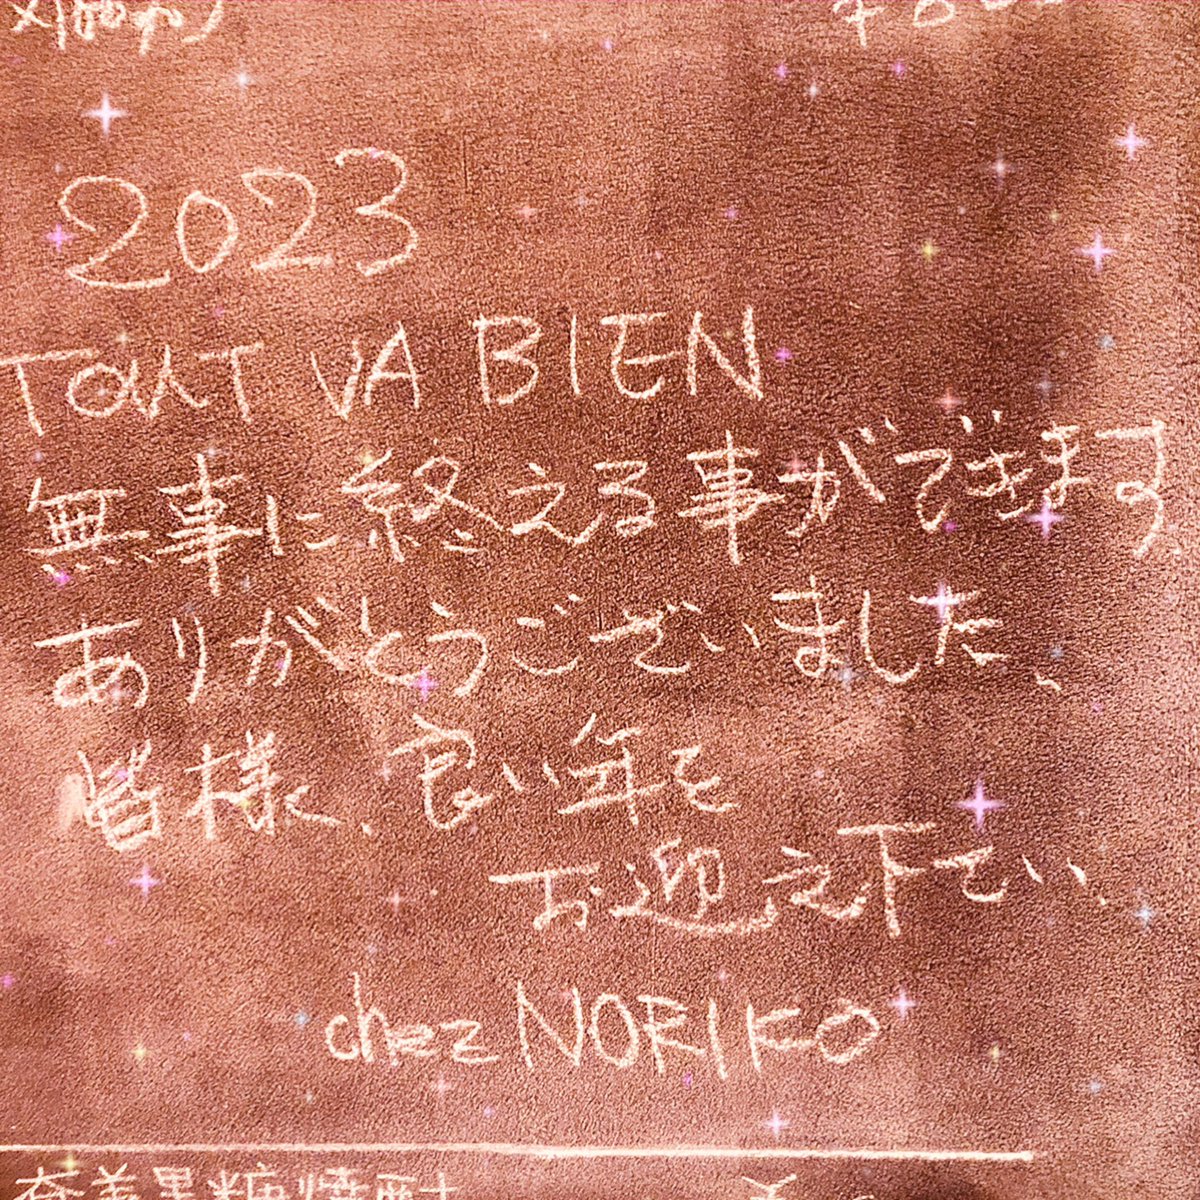 2023
TOUT VA BIEN
無事に終える事ができます
ありがとうございました、
皆様、良い年を
お迎え下さい、
chez NORIKO
奄美黒糖焼酎